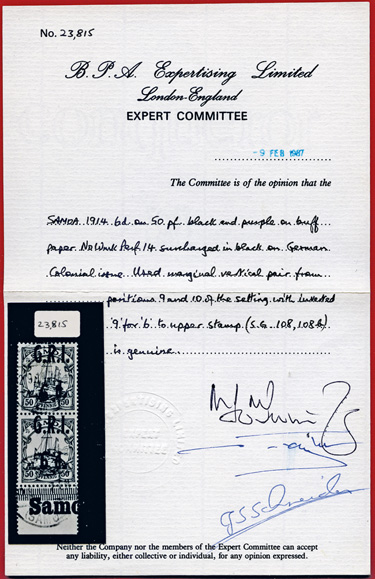 No. 23,815
B. P. A. Expertising Limited
London-England
EXPERT COMMITTEE
- 9 FEB 1987
The Committee is of the opinion that the
SAMOA 1914 6d on 50 pf. black and purple on buff
paper No Wmk Perf 14 surcharged in black on German
Colonial issue. Used marginal vertical pair from
positions 9 and 10 of the setting with inverted
'9' for '6' to upper stamp (S.G. 108, 108b)
is genuine
23,815
G.R.I.
50 50
G.R.I.
50 50
Samo
G S Schneider
Neither the Company nor the members of the Expert Committee can accept
any liability, either collective or individual, for any opinion expressed.